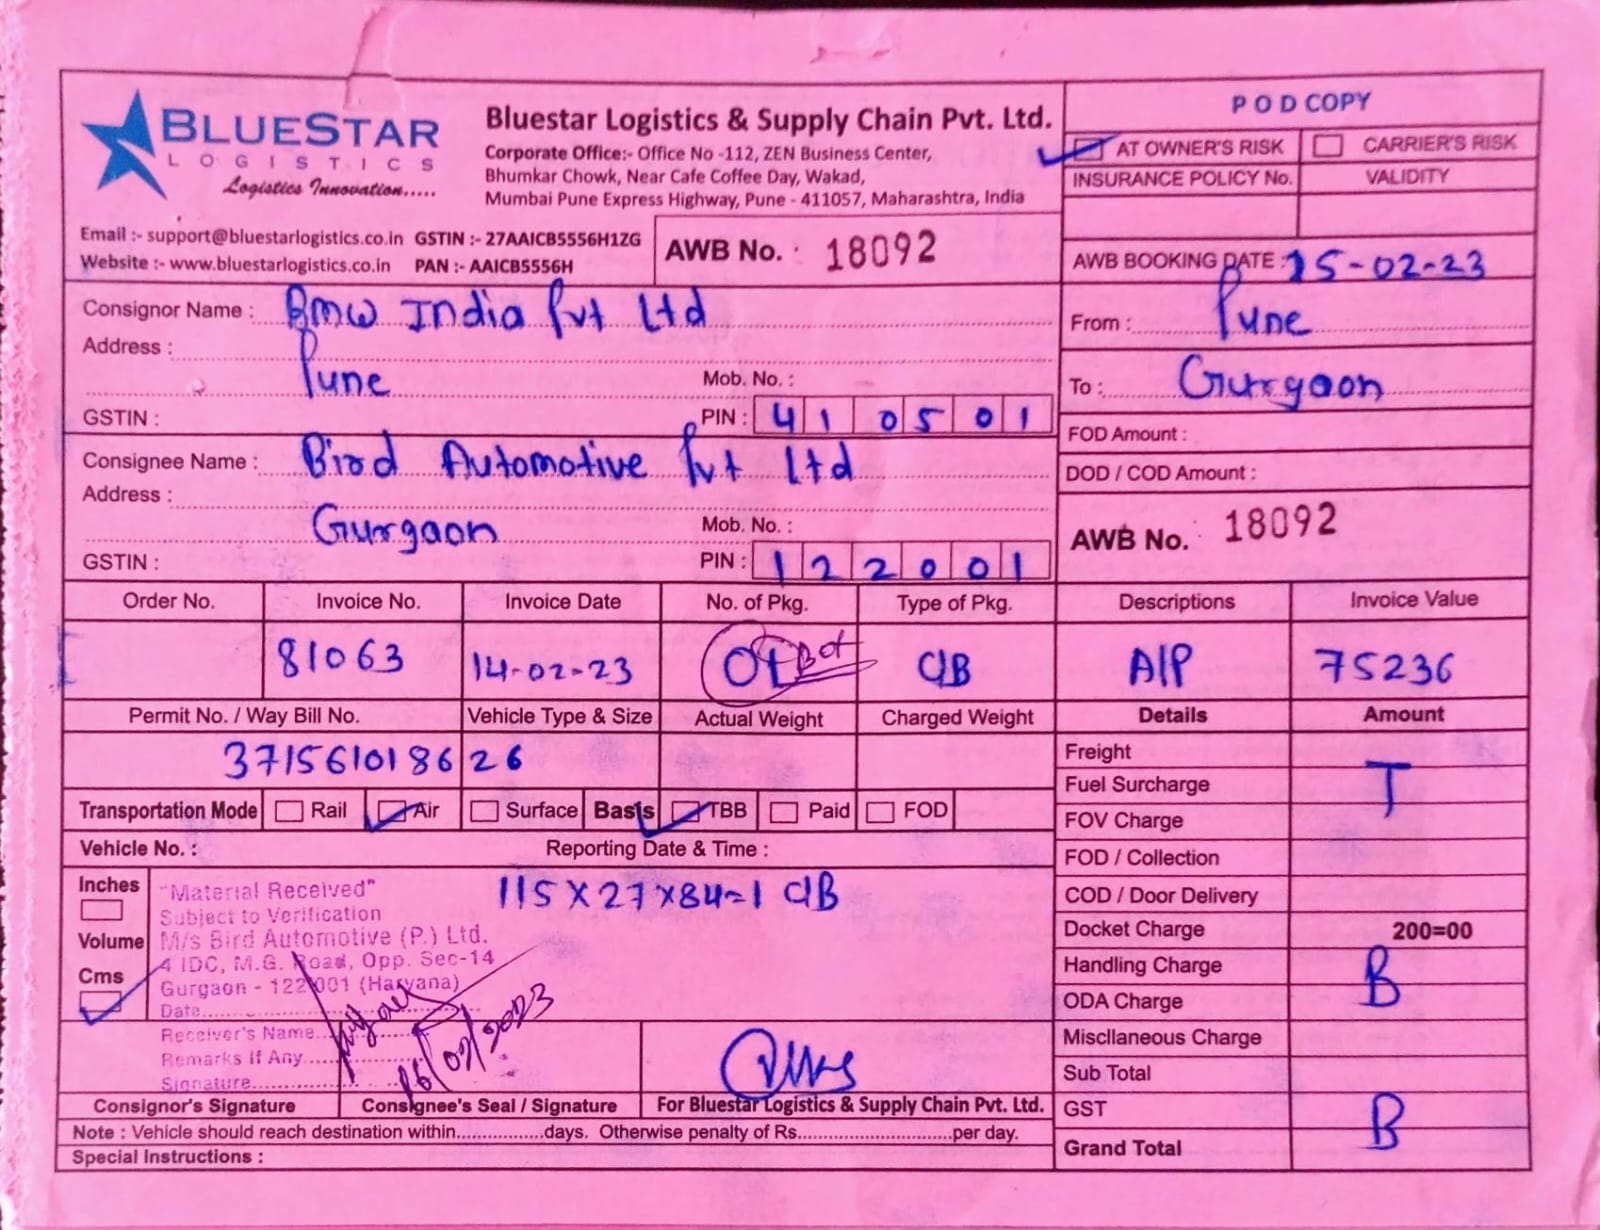 BLUESTAR
LOGISTICS
Logistics Innovation.....
Bluestar Logistics & Supply Chain Pvt. Ltd.
Corporate Office:- Office No -112, ZEN Business Center,
Bhumkar Chowk, Near Cafe Coffee Day, Wakad,
Mumbai Pune Express Highway, Pune - 411057, Maharashtra, India
Email :- support@bluestarlogistics.co.in GSTIN :- 27AAICB5556H1ZG
Website :- www.bluestarlogistics.co.in PAN :- AAICB5556H
AWB No. : 18092
POD COPY
AT OWNER'S RISK CARRIER'S RISK
INSURANCE POLICY No. VALIDITY
AWB BOOKING DATE : 15-02-23
From : Pune
To : Gurgaon
FOD Amount :
DOD / COD Amount :
AWB No. : 18092
Consignor Name : BMW India Pvt Ltd
Address :
Pune Mob. No. :
GSTIN : PIN : 410501
Consignee Name : Bird Automotive Pvt Ltd
Address :
Gurgaon Mob. No. :
GSTIN : PIN : 122001
Order No. Invoice No. Invoice Date No. of Pkg. Type of Pkg. Descriptions Invoice Value
81063 14-02-23 01 Box C/B A/P 75236
Permit No. / Way Bill No. Vehicle Type & Size Actual Weight Charged Weight Details Amount
371561018626
Transportation Mode Rail Air Surface Basis TBB Paid FOD
Vehicle No. : Reporting Date & Time :
Inches
Volume
Cms
115X27X84=1 C/B
"Material Received"
Subject to Verification
M/s Bird Automotive (P.) Ltd.
4 IDC, M.G. Road, Opp. Sec-14
Gurgaon - 122001 (Haryana)
Date..........
Receiver's Name...
Remarks If Any....
Signature..........
16/02/2023
Consignor's Signature Consignee's Seal / Signature For Bluestar Logistics & Supply Chain Pvt. Ltd.
Note : Vehicle should reach destination within................days. Otherwise penalty of Rs............................per day.
Special Instructions :
Freight
Fuel Surcharge T
FOV Charge
FOD / Collection
COD / Door Delivery
Docket Charge 200=00
Handling Charge B
ODA Charge
Miscllaneous Charge
Sub Total
GST B
Grand Total